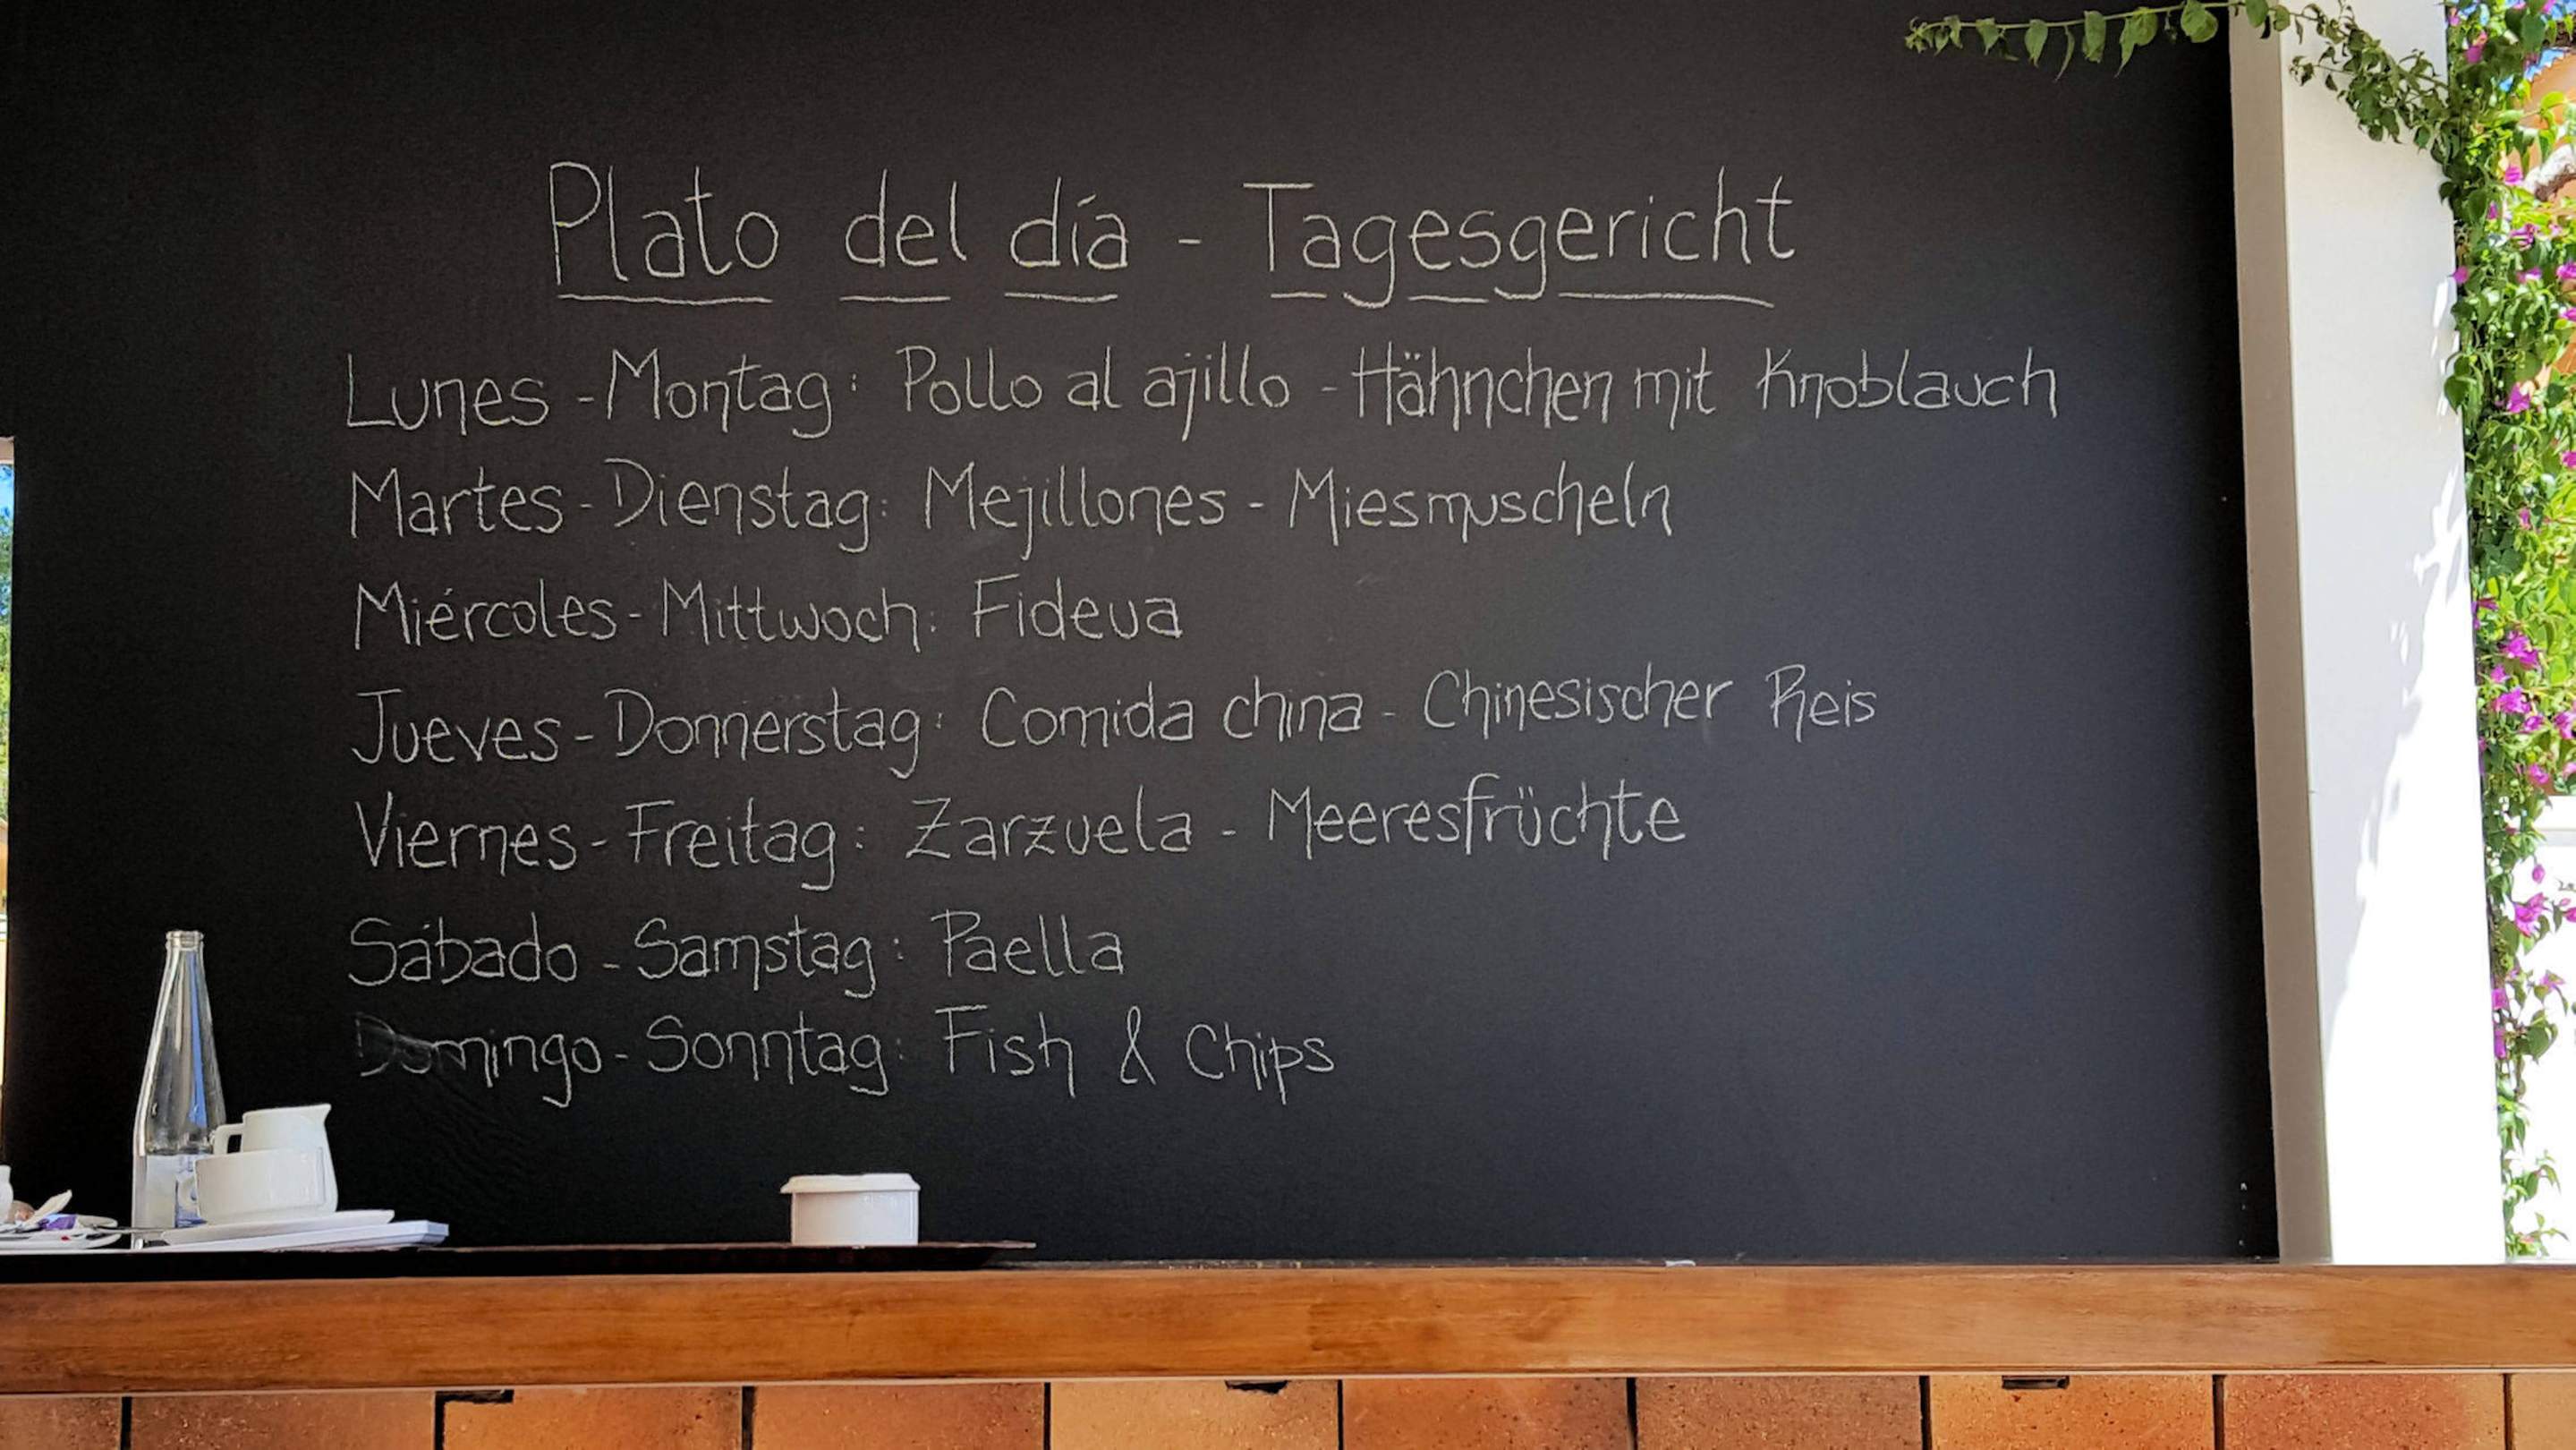 Plato del día - Tagesgericht
Lunes - Montag: Pollo al ajillo - Hähnchen mit Knoblauch
Martes - Dienstag: Mejillones - Miesmuscheln
Miércoles - Mittwoch: Fideua
Jueves - Donnerstag: Comida china - Chinesischer Reis
Viernes - Freitag: Zarzuela - Meeresfrüchte
Sábado - Samstag: Paella
Domingo - Sonntag: Fish & Chips